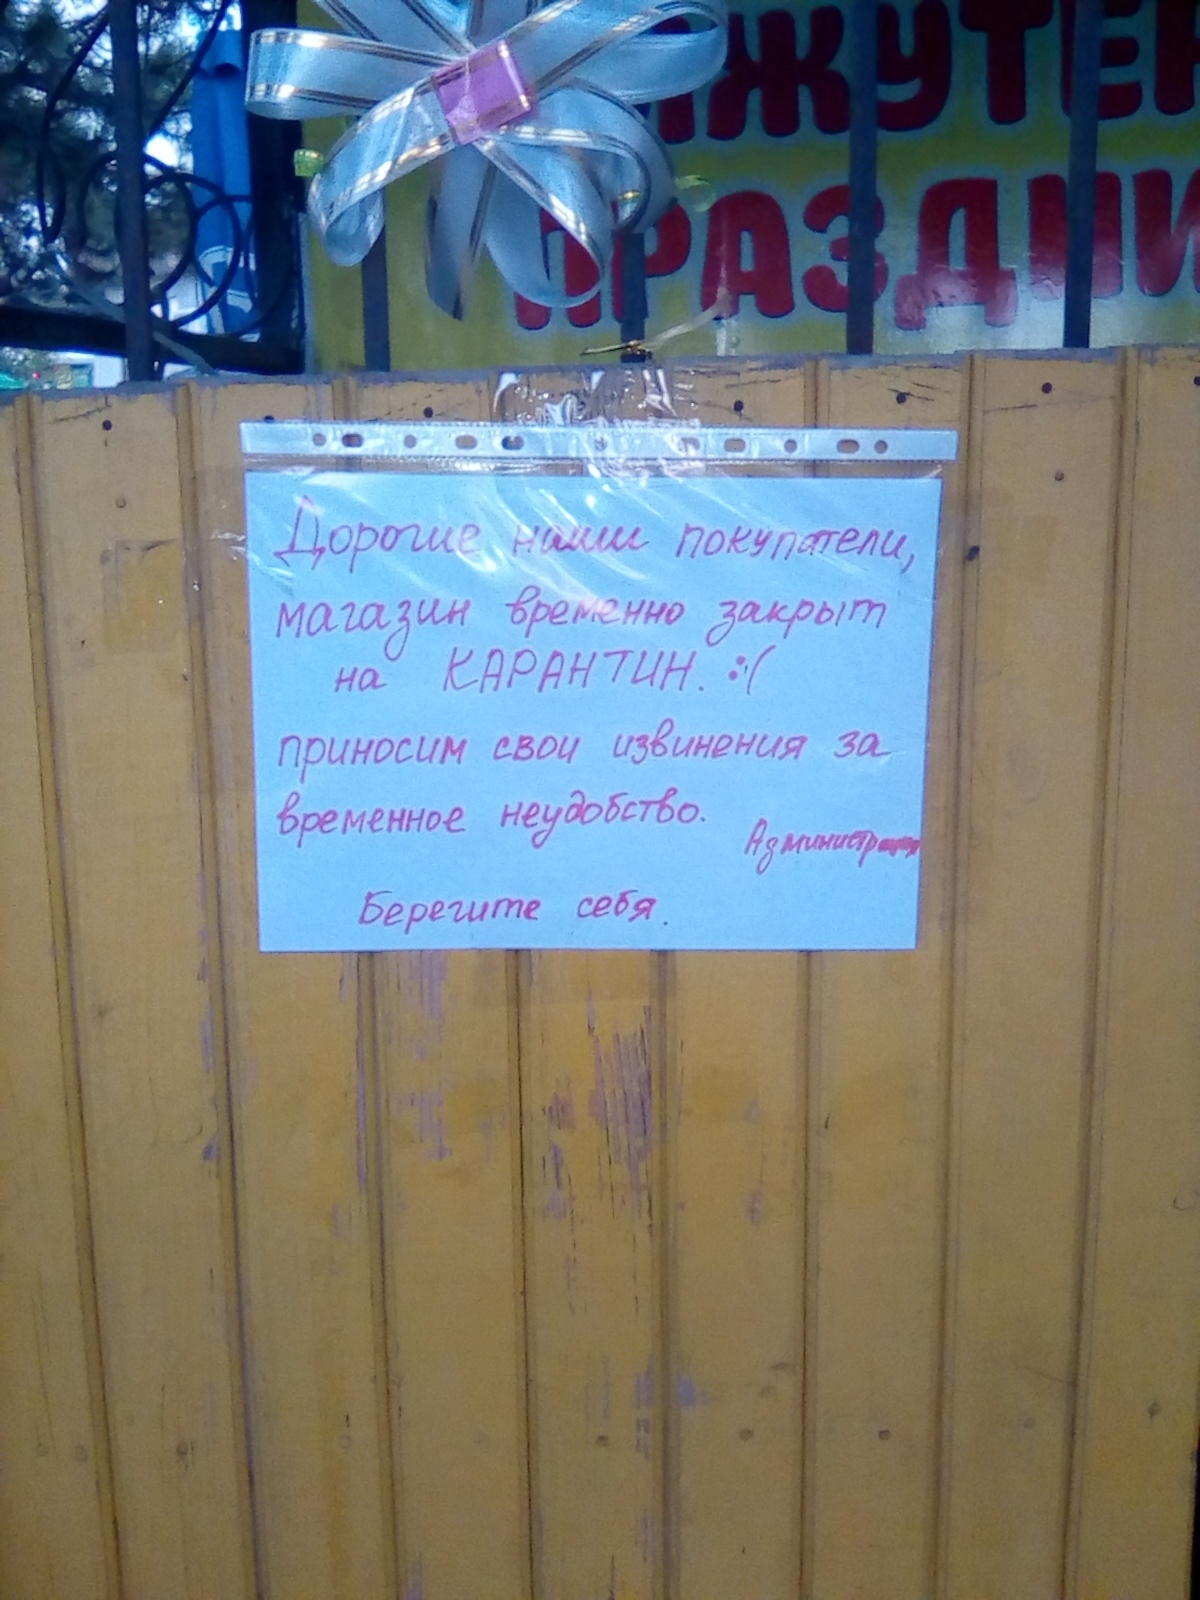 ЖУТЕ
ПРАЗДНИ
Дорогие наши покупатели,
магазин временно закрыт
на КАРАНТИН. :'(
приносим свои извинения за
временное неудобство.
Администрация
Берегите себя.